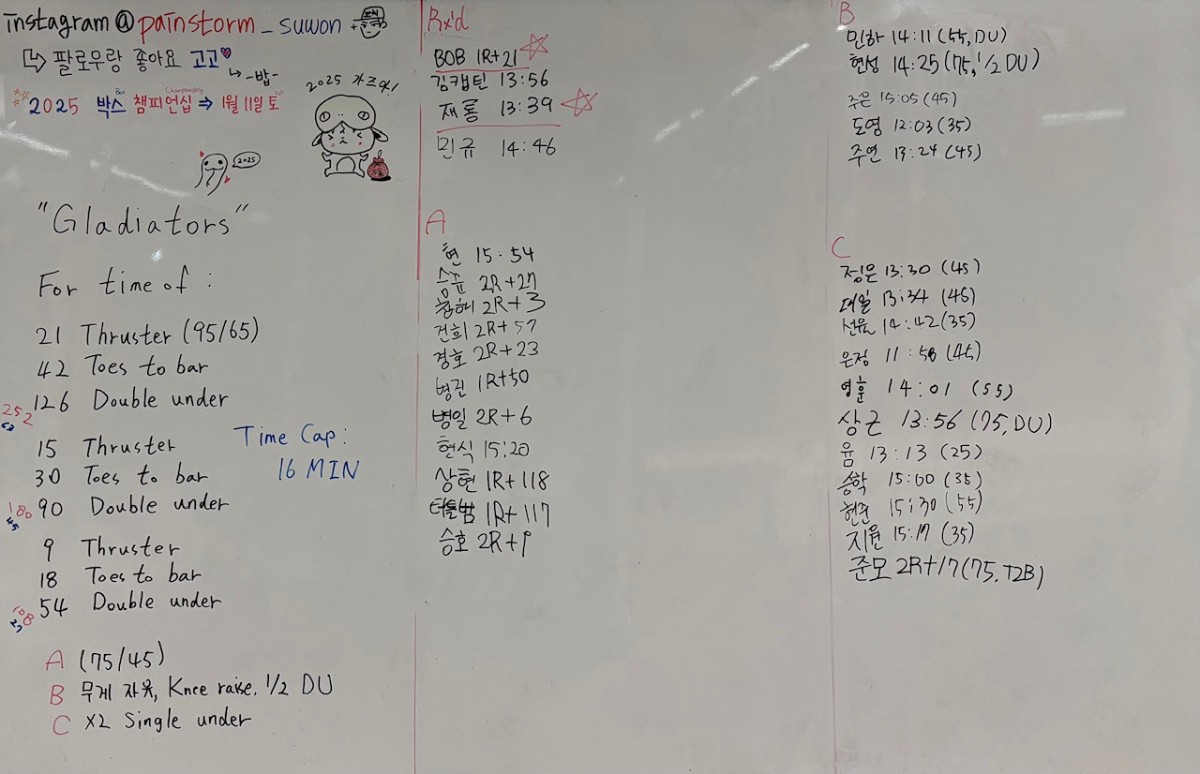 instagram@painstorm_suwon +
↳ 팔로우랑 좋아요 고고♥
↳ -밥-
2025 박스 챔피언십 ⇒ 1월 11일 토
Box Championship
2025
"Gladiators"
For time of :
21 Thruster (95/65)
42 Toes to bar
126 Double under
252
63
15 Thruster
30 Toes to bar
90 Double under
180
45
Time Cap:
16 MIN
9 Thruster
18 Toes to bar
54 Double under
108
27
A (75/45)
B 무게 자유, Knee raise, 1/2 DU
C X2 Single under
Rx'd
BOB 1R+21 ☆
김캡틴 13:56
재룡 13:39 ☆
민규 14:46
A
현 15:54
승규 2R+27
2R+3
건희 2R+57
경호 2R+23
병진 1R+50
병일 2R+6
현식 15:20
상현 1R+118
터틀밤 1R+117
승호 2R+9
B
민하 14:11 (55, DU)
현성 14:25 (75, 1/2 DU)
주은 15:05 (45)
도영 12:03 (35)
주연 13:24 (45)
C
정은 13:30 (45)
대일 13:34 (45)
선윤 14:42 (35)
은정 11:58 (45)
영훈 14:01 (55)
상근 13:56 (75, DU)
윰 13:13 (25)
승학 15:00 (35)
현준 15:30 (55)
지원 15:17 (35)
준모 2R+17 (75, T2B)